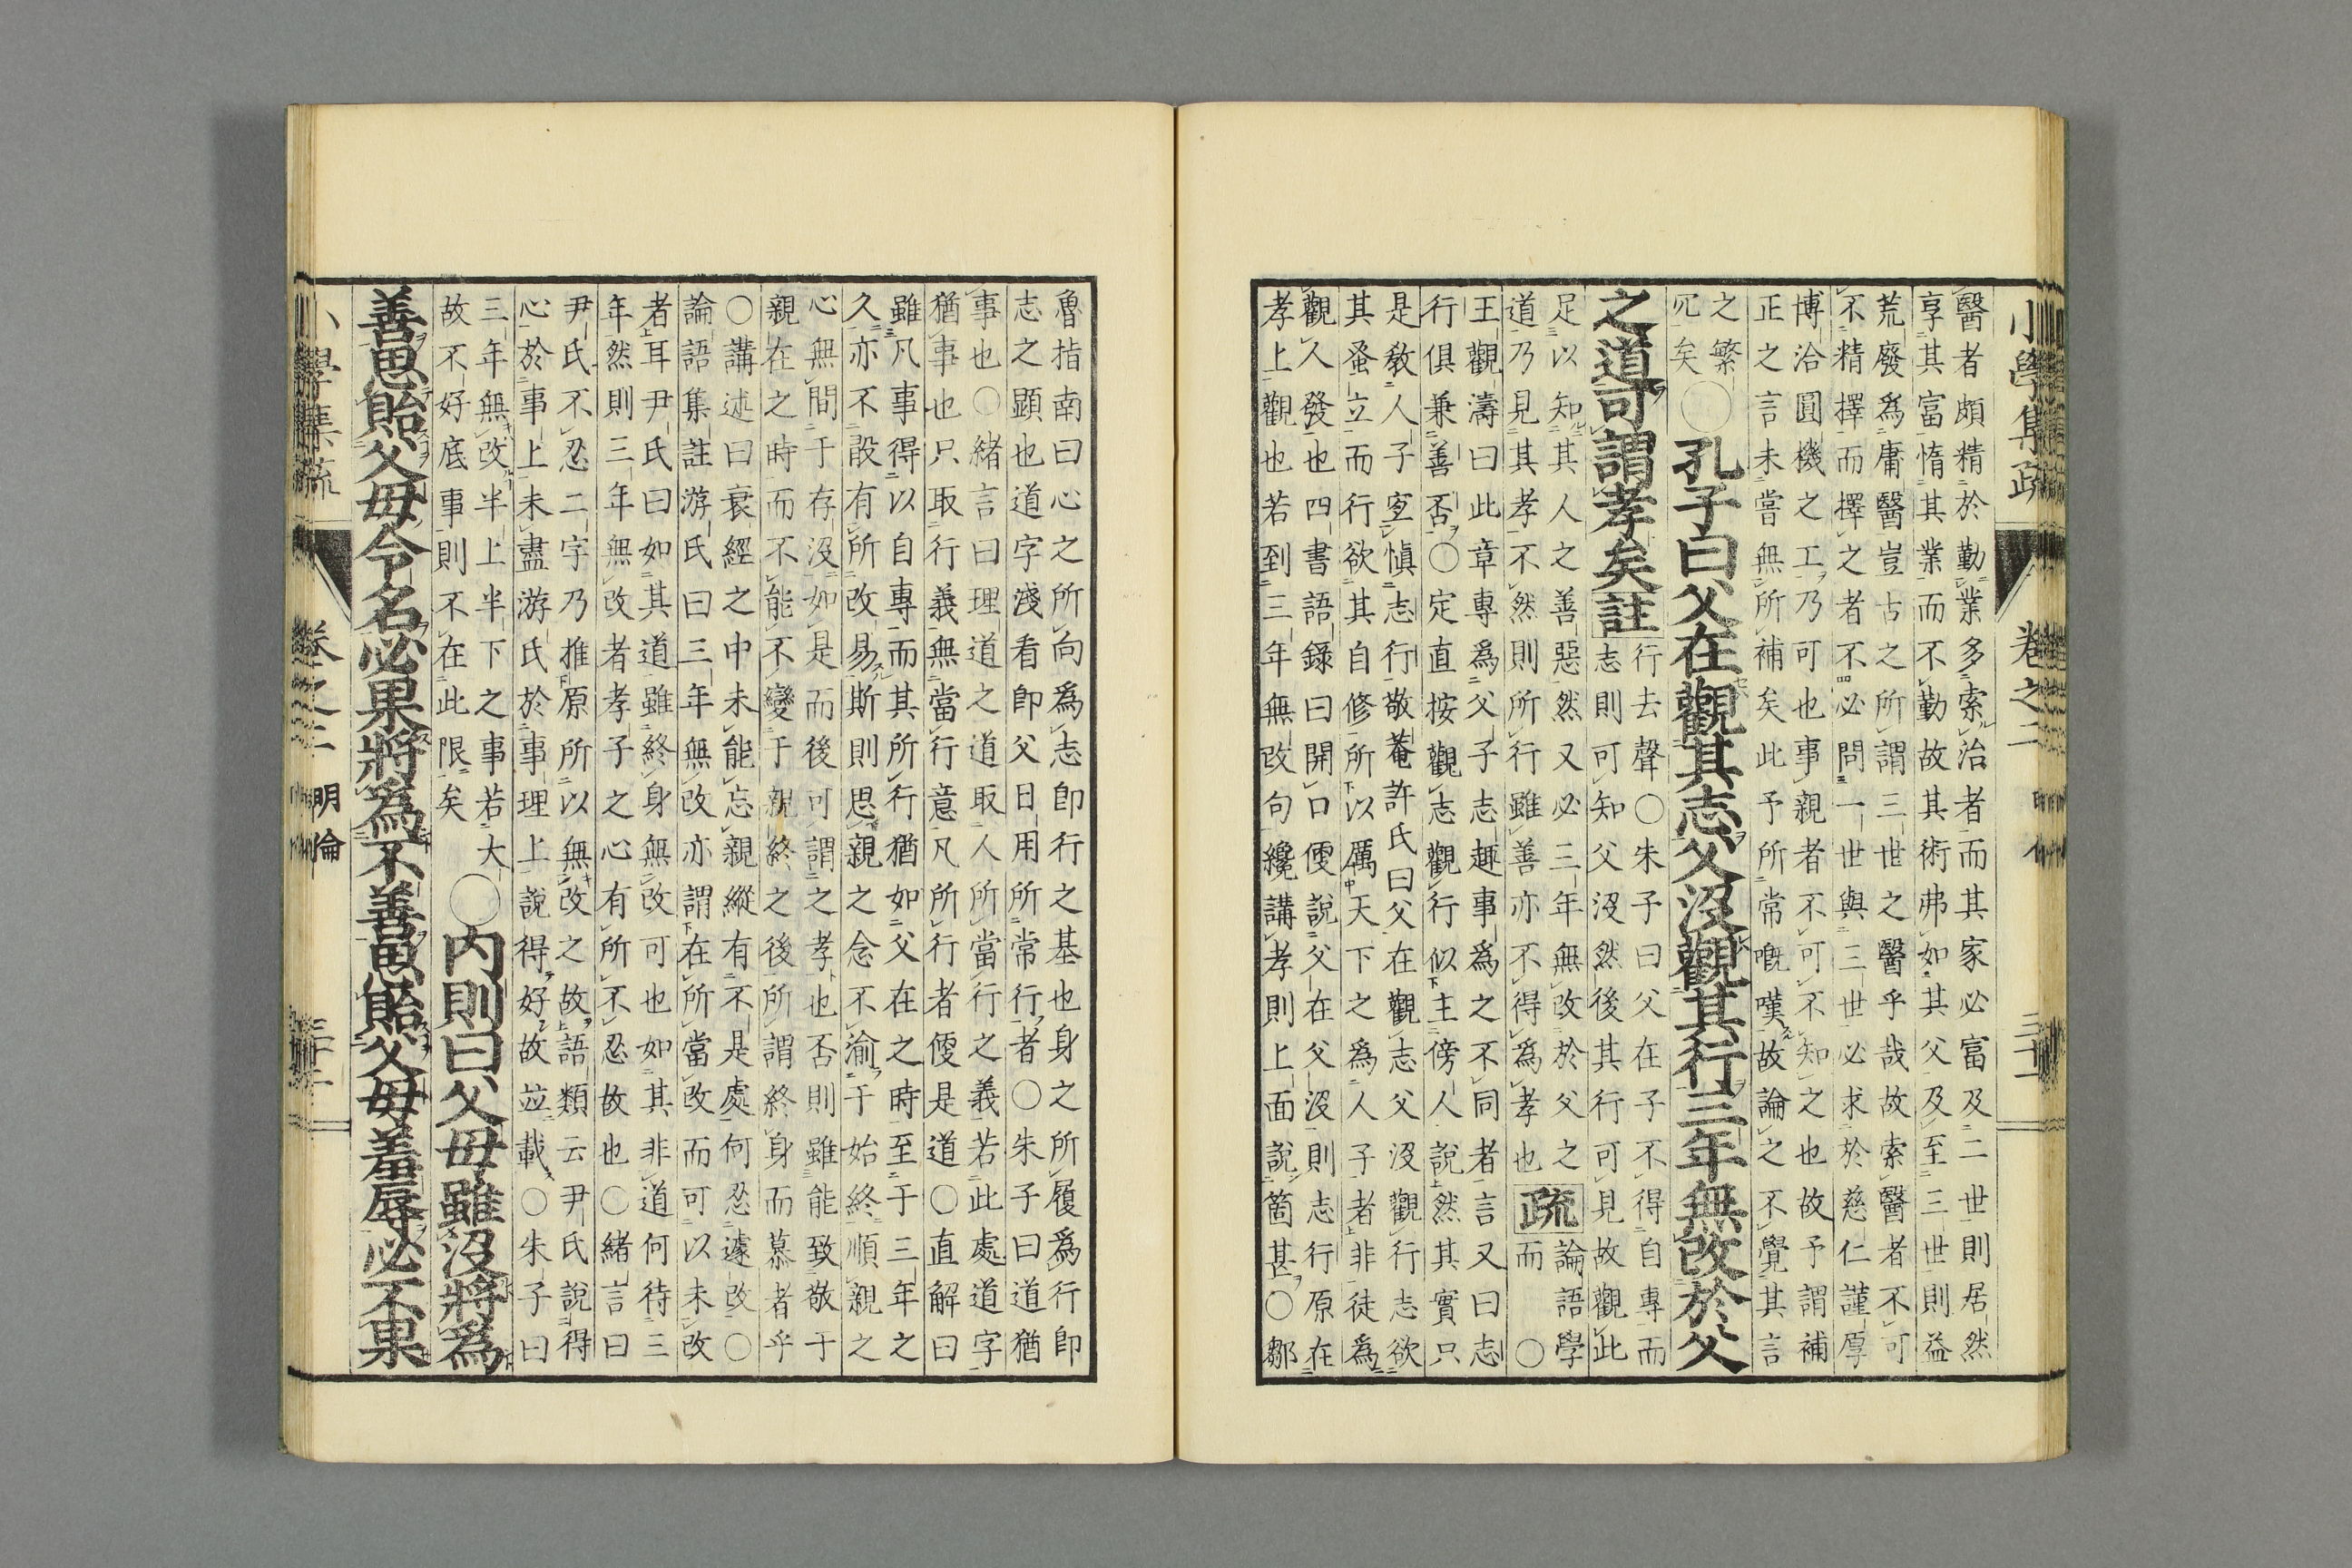 醫者頗精於勤業多索治者而其家必富及二世則居然
享其富惰其業而不勤故其術弗如其父及至三世則益
荒廢爲庸醫豈古之所謂三世之醫乎哉故索醫者不可
不精擇而擇之者不必問一世與三世必求於慈仁謹厚
博洽圓機之工乃可也事親者不可不知之也故予謂補
正之言未嘗無所補矣此予所常嘅嘆故論之不覺其言
之繁
冗矣
○孔子曰父在觀其志父沒觀其行三年無改於父
之道可謂孝矣註
行去聲○朱子曰父在子不得自專而
志則可知父沒然後其行可見故觀此
足以知其人之善惡然又必三年無改於父之
道乃見其孝不然則所行雖善亦不得爲孝也
疏
論語學
而○
王觀濤曰此章專爲父子志趣事爲之不同者言又曰志
行俱兼善否○定直按觀志觀行似主傍人說然其實只
是敎人子寔愼志行敬菴許氏曰父在觀志父沒觀行志欲
其蚤立而行欲其自修所以厲天下之爲人子者非徒爲
觀人發也四書語錄曰開口便說父在父沒則志行原在
孝上觀也若到三年無改句纔講孝則上面說箇甚○鄒
小學集疏
卷之二
三十二
魯指南曰心之所向爲志卽行之基也身之所履爲行卽
志之顕也道字淺看卽父日用所常行者○朱子曰道猶
事也○緒言曰理道之道取人所當行之義若此處道字
猶事也只取行義無當行意凡所行者便是道○直解曰
雖凡事得以自專而其所行猶如父在之時至于三年之
久亦不設有所改易斯則思親之念不渝于始終順親之
心無間于存沒如是而後可謂之孝也否則雖能致敬于
親在之時而不能不變于親終之後所謂終身而慕者乎
○講述曰衰經之中未能忘親縱有不是處何忍遽改○
論語集註游氏曰三年無改亦謂在所當改而可以未改
者耳尹氏曰如其道雖終身無改可也如其非道何待三
年然則三年無改者孝子之心有所不忍故也○緒言曰
尹氏不忍二字乃推原所以無改之故語類云尹氏說得
心於事上未盡游氏於事理上說得好故竝載○朱子曰
三年無改半上半下之事若大
故不好底事則不在此限矣
○內則曰父母雖沒將爲
善思貽父母令名必果將爲不善思貽父母羞辱必不果
小學集疏
卷之二
明倫
三十二